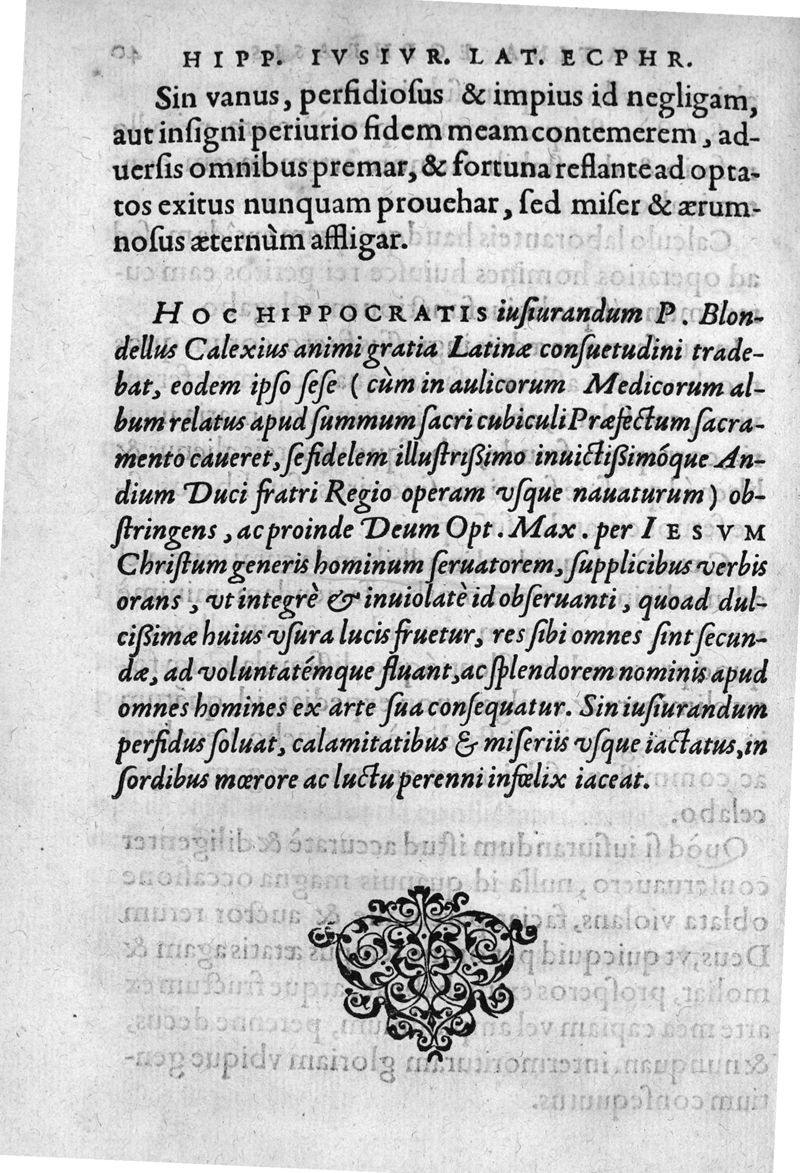 HIPP. IVSIVR. LAT. ECPHR.
Sin vanus, perfidiosus & impius id negligam,
aut insigni periurio fidem meam contemerem, ad-
uersis omnibus premar, & fortuna reflante ad opta-
tos exitus nunquam prouehar, sed miser & ærum-
nosus æternùm affligar.
HOC HIPPOCRATIS iusiurandum P. Blon-
dellus Calexius animi gratia Latinæ consuetudini trade-
bat, eodem ipso sese (cùm in aulicorum Medicorum al-
bum relatus apud summum sacri cubiculi Præfectum sacra-
mento caueret, se fidelem illustrißimo inuictißimóque An-
dium Duci fratri Regio operam vsque nauaturum) ob-
stringens, ac proinde Deum Opt. Max. per IESVM
Christum generis hominum seruatorem, supplicibus verbis
orans, vt integrè & inuiolatè id obseruanti, quoad dul-
cißimæ huius vsura lucis fruetur, res sibi omnes sint secun-
dæ, ad voluntatémque fluant, ac splendorem nominis apud
omnes homines ex arte sua consequatur. Sin iusiurandum
perfidus soluat, calamitatibus & miseriis vsque iactatus, in
sordibus mœrore ac luctu perenni infœlix iaceat.